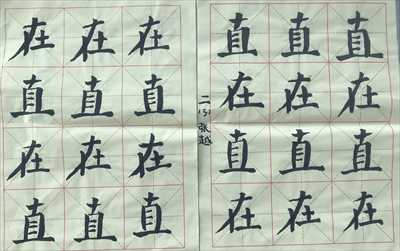 在在在
直直直
在在在
直直直
张越
直直直
在在在
直直直
在在在